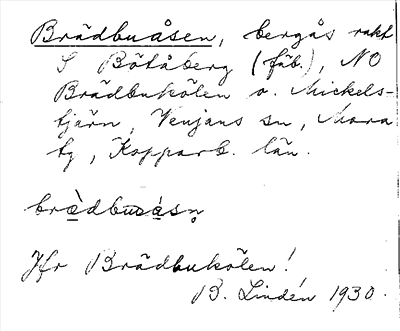 Brädbuåsen, bergås rakt
S Bötåberg (fäb.), NO
Brädbukölen o. Mickels-
tjärn, Venjans sn, Mora
tg, Kopparb. län.
brä̀dbuåsn̥
Jfr Brädbukölen!
B. Lindén 1930.